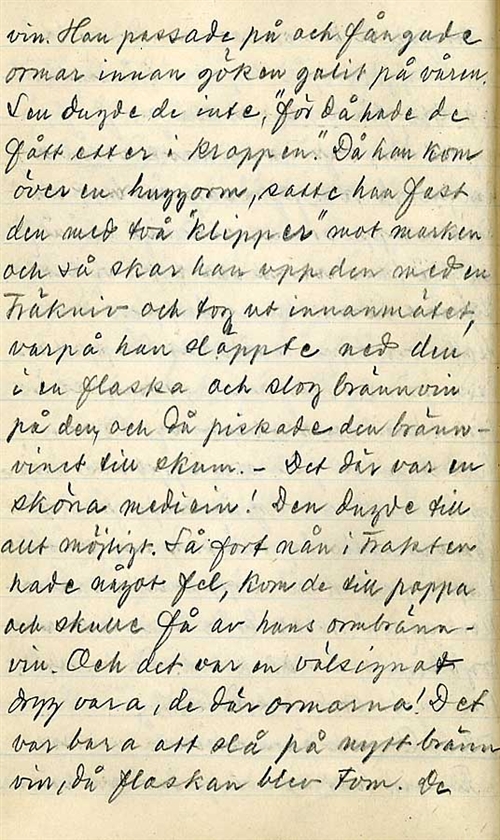 vin. Han passade på och fångade
ormar innan göken galit på våren.
Sen dugde de inte, "för då hade de
fått etter i kroppen." Då han kom
över en huggorm, satte han fast
den med två "klipper" mot marken
och så skar han upp den med en
träkniv och tog ut innanmätet,
varpå han släppte ned den
i en flaska och slog brännvin
på den, och då piskade den bränn-
vinet till skum. - Det där var en
sköna medicin! Den dugde till
allt möjligt. Så fort nån i trakten
hade något fel, kom de till pappa
och skulle få av hans ormbränn-
vin. Och det var en välsignat
dryg vara, de där ormarna! Det
var bara att slå på nytt bränn
vin, då flaskan blev tom. De